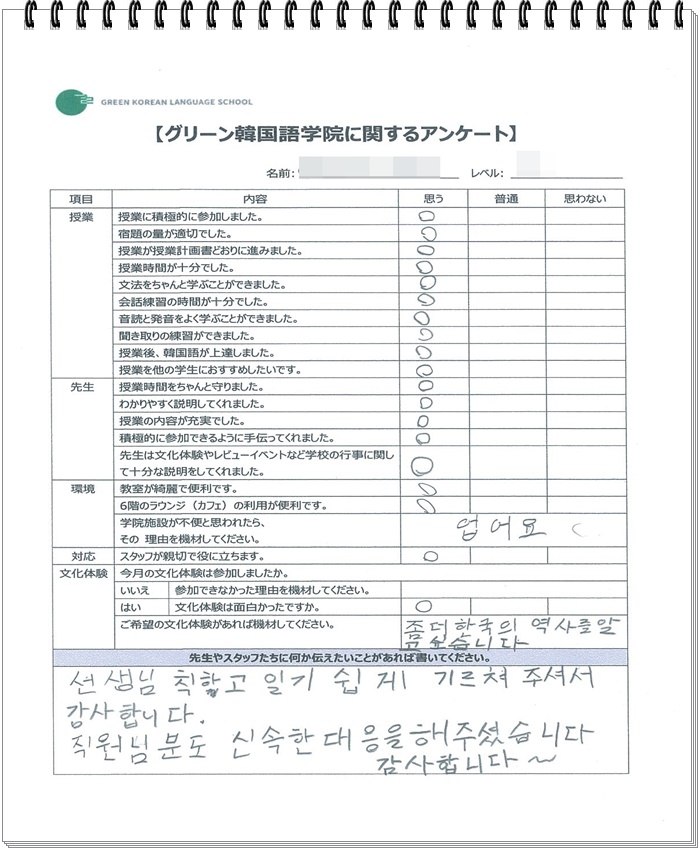 GREEN KOREAN LANGUAGE SCHOOL
【グリーン韓国語学院に関するアンケート】
名前: レベル:
項目 内容 思う 普通 思わない
授業 授業に積極的に参加しました。 ○
宿題の量が適切でした。 ○
授業が授業計画書どおりに進みました。 ○
授業時間が十分でした。 ○
文法をちゃんと学ぶことができました。 ○
会話練習の時間が十分でした。 ○
音読と発音をよく学ぶことができました。 ○
聞き取りの練習ができました。 ○
授業後、韓国語が上達しました。 ○
授業を他の学生におすすめしたいです。 ○
先生 授業時間をちゃんと守りました。 ○
わかりやすく説明してくれました。 ○
授業の内容が充実でした。 ○
積極的に参加できるように手伝ってくれました。 ○
先生は文化体験やレビューイベントなど学校の行事に関し
て十分な説明をしてくれました。 ○
環境 教室が綺麗で便利です。 ○
6階のラウンジ（カフェ）の利用が便利です。 ○
学院施設が不便と思われたら、
その 理由を機材してください。 업어요
対応 スタッフが親切で役に立ちます。 ○
文化体験 今月の文化体験は参加しましたか。
いいえ 参加できなかった理由を機材してください。
はい 文化体験は面白かったですか。 ○
ご希望の文化体験があれば機材してください。 좀더 한국의 역사를알
고 습니다
先生やスタッフたちに何か伝えたいことがあれば書いてください。
선생님 착핳고 일기 쉽게 기르쳐 주셔서
감사합니다.
직원님분도 신속한 대응을해주셨습니다
감사합니다~